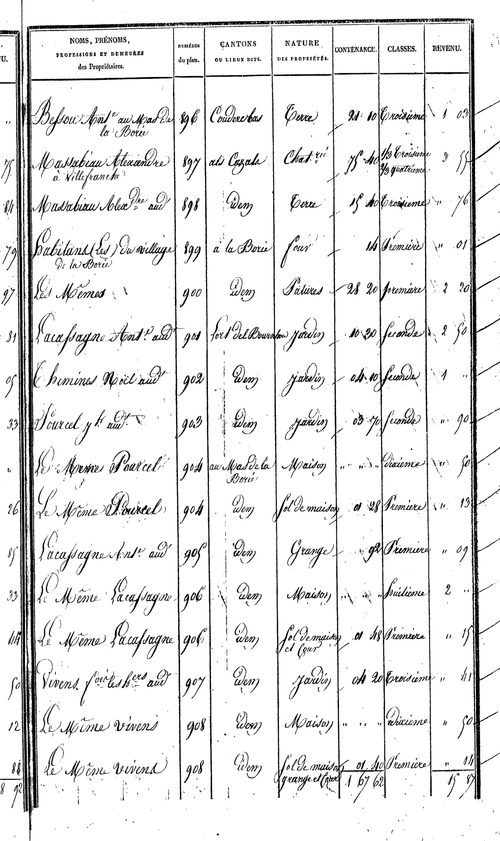 NOMS, PRÉNOMS, PROFESSIONS ET DEMEURES des Propriétaires. | NUMÉROS du plan. | CANTONS OU LIEUX DITS. | NATURE DES PROPRIÉTÉS. | CONTENANCE. | CLASSES. | REVENU.
Bessou Ant.e au Mas de la Borie 896 Couderc bas Terre 21 10 Troisième 1 03
75 Massabiau Alexandre à Villefranche 897 als Cazals Chat.rée 75 40 1/2 Troisième 1/2 quatrième 3 55
84 Massabiau Alex.dre aud.t 898 idem Terre 15 40 Troisième " 76
79 habitans (Les) du village de la Borie 899 à la Borie four 14 Première " 01
97 Les Mêmes 900 idem Patières 28 20 première 2 20
81 Lacassagne Ant.e aud.t 901 idem jardin 10 20 Seconde 2 50
05 Themines Noël aud.t 902 idem jardin 04 10 Seconde 1 "
33 Pourcel aud.t 903 idem jardin 03 70 Seconde " 90
" Le Même Pourcel 904 au Mas de la Borie Maison " " " dixième " 50
26 Le Même Pourcel 904 idem sol de maison 01 28 Première " 13
85 Lacassagne Ant.e aud.t 905 idem Grange " 92 Première " 09
33 Le Même Lacassagne 906 idem Maison " " " huitième 2 "
44 Le Même Lacassagne 906 idem sol de maison et Cour 01 48 Première " 15
50 Vivens les h.ers aud.t 907 idem jardin 04 20 Troisième " 41
12 Le Même vivens 908 idem Maison " " " dixième " 50
88 Le Même vivens 908 idem sol de maison grange et Cour 01 40 Première " 14
8 92 1 67 62 15 87